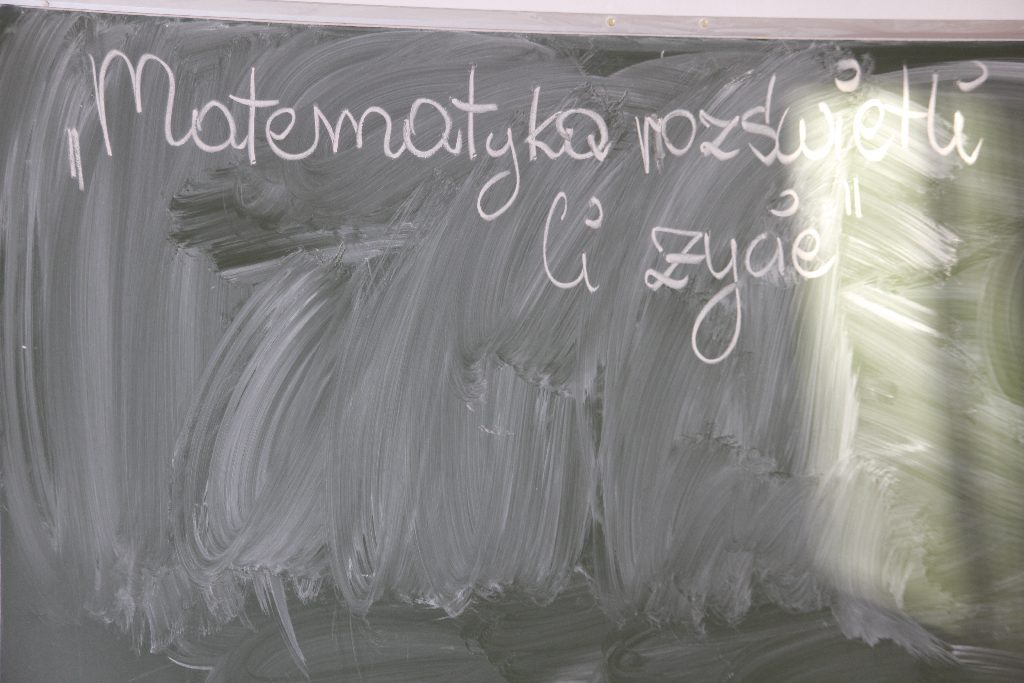 „Matematyka rozświetli
Ci życie"